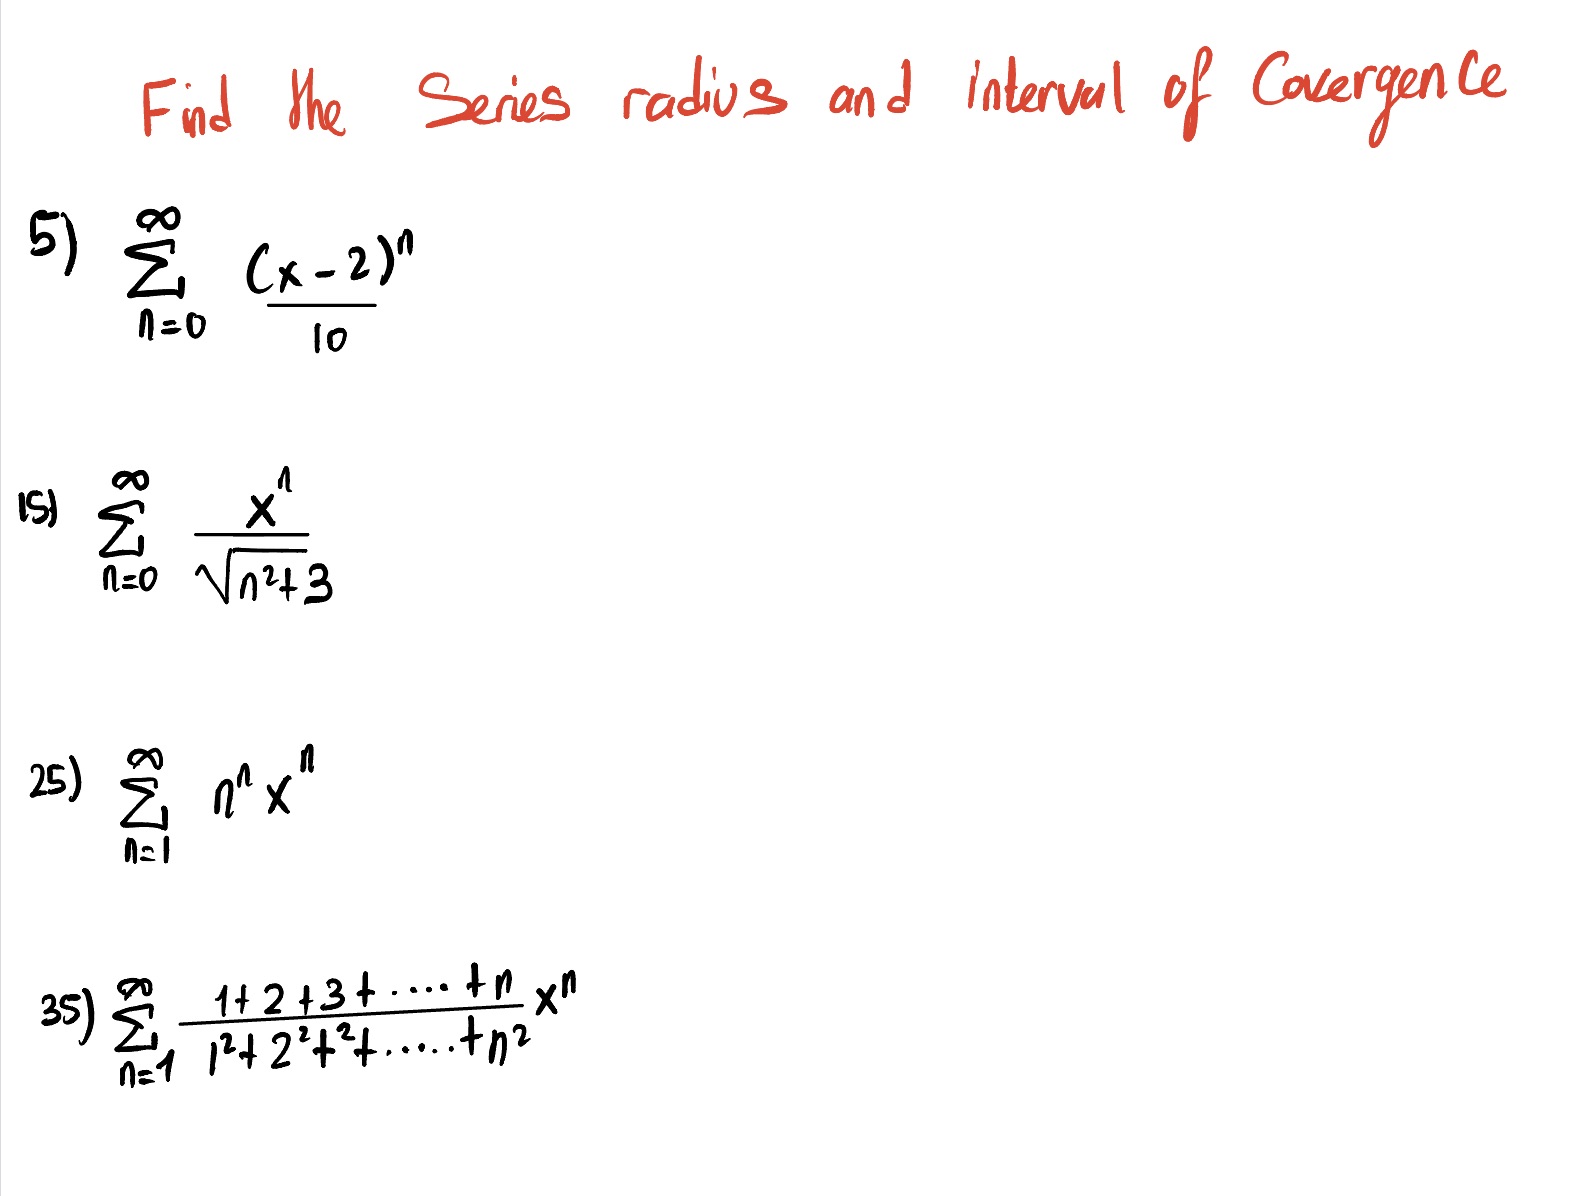 Find the Series radius and interval of Covergence
5) ∞ Σ n=0 (x-2)ⁿ / 10
15) ∞ Σ n=0 xⁿ / √n²+3
25) ∞ Σ n=1 nⁿ xⁿ
35) ∞ Σ n=1 1+2+3+....+n / 1²+2²+²+.....+n² xⁿ